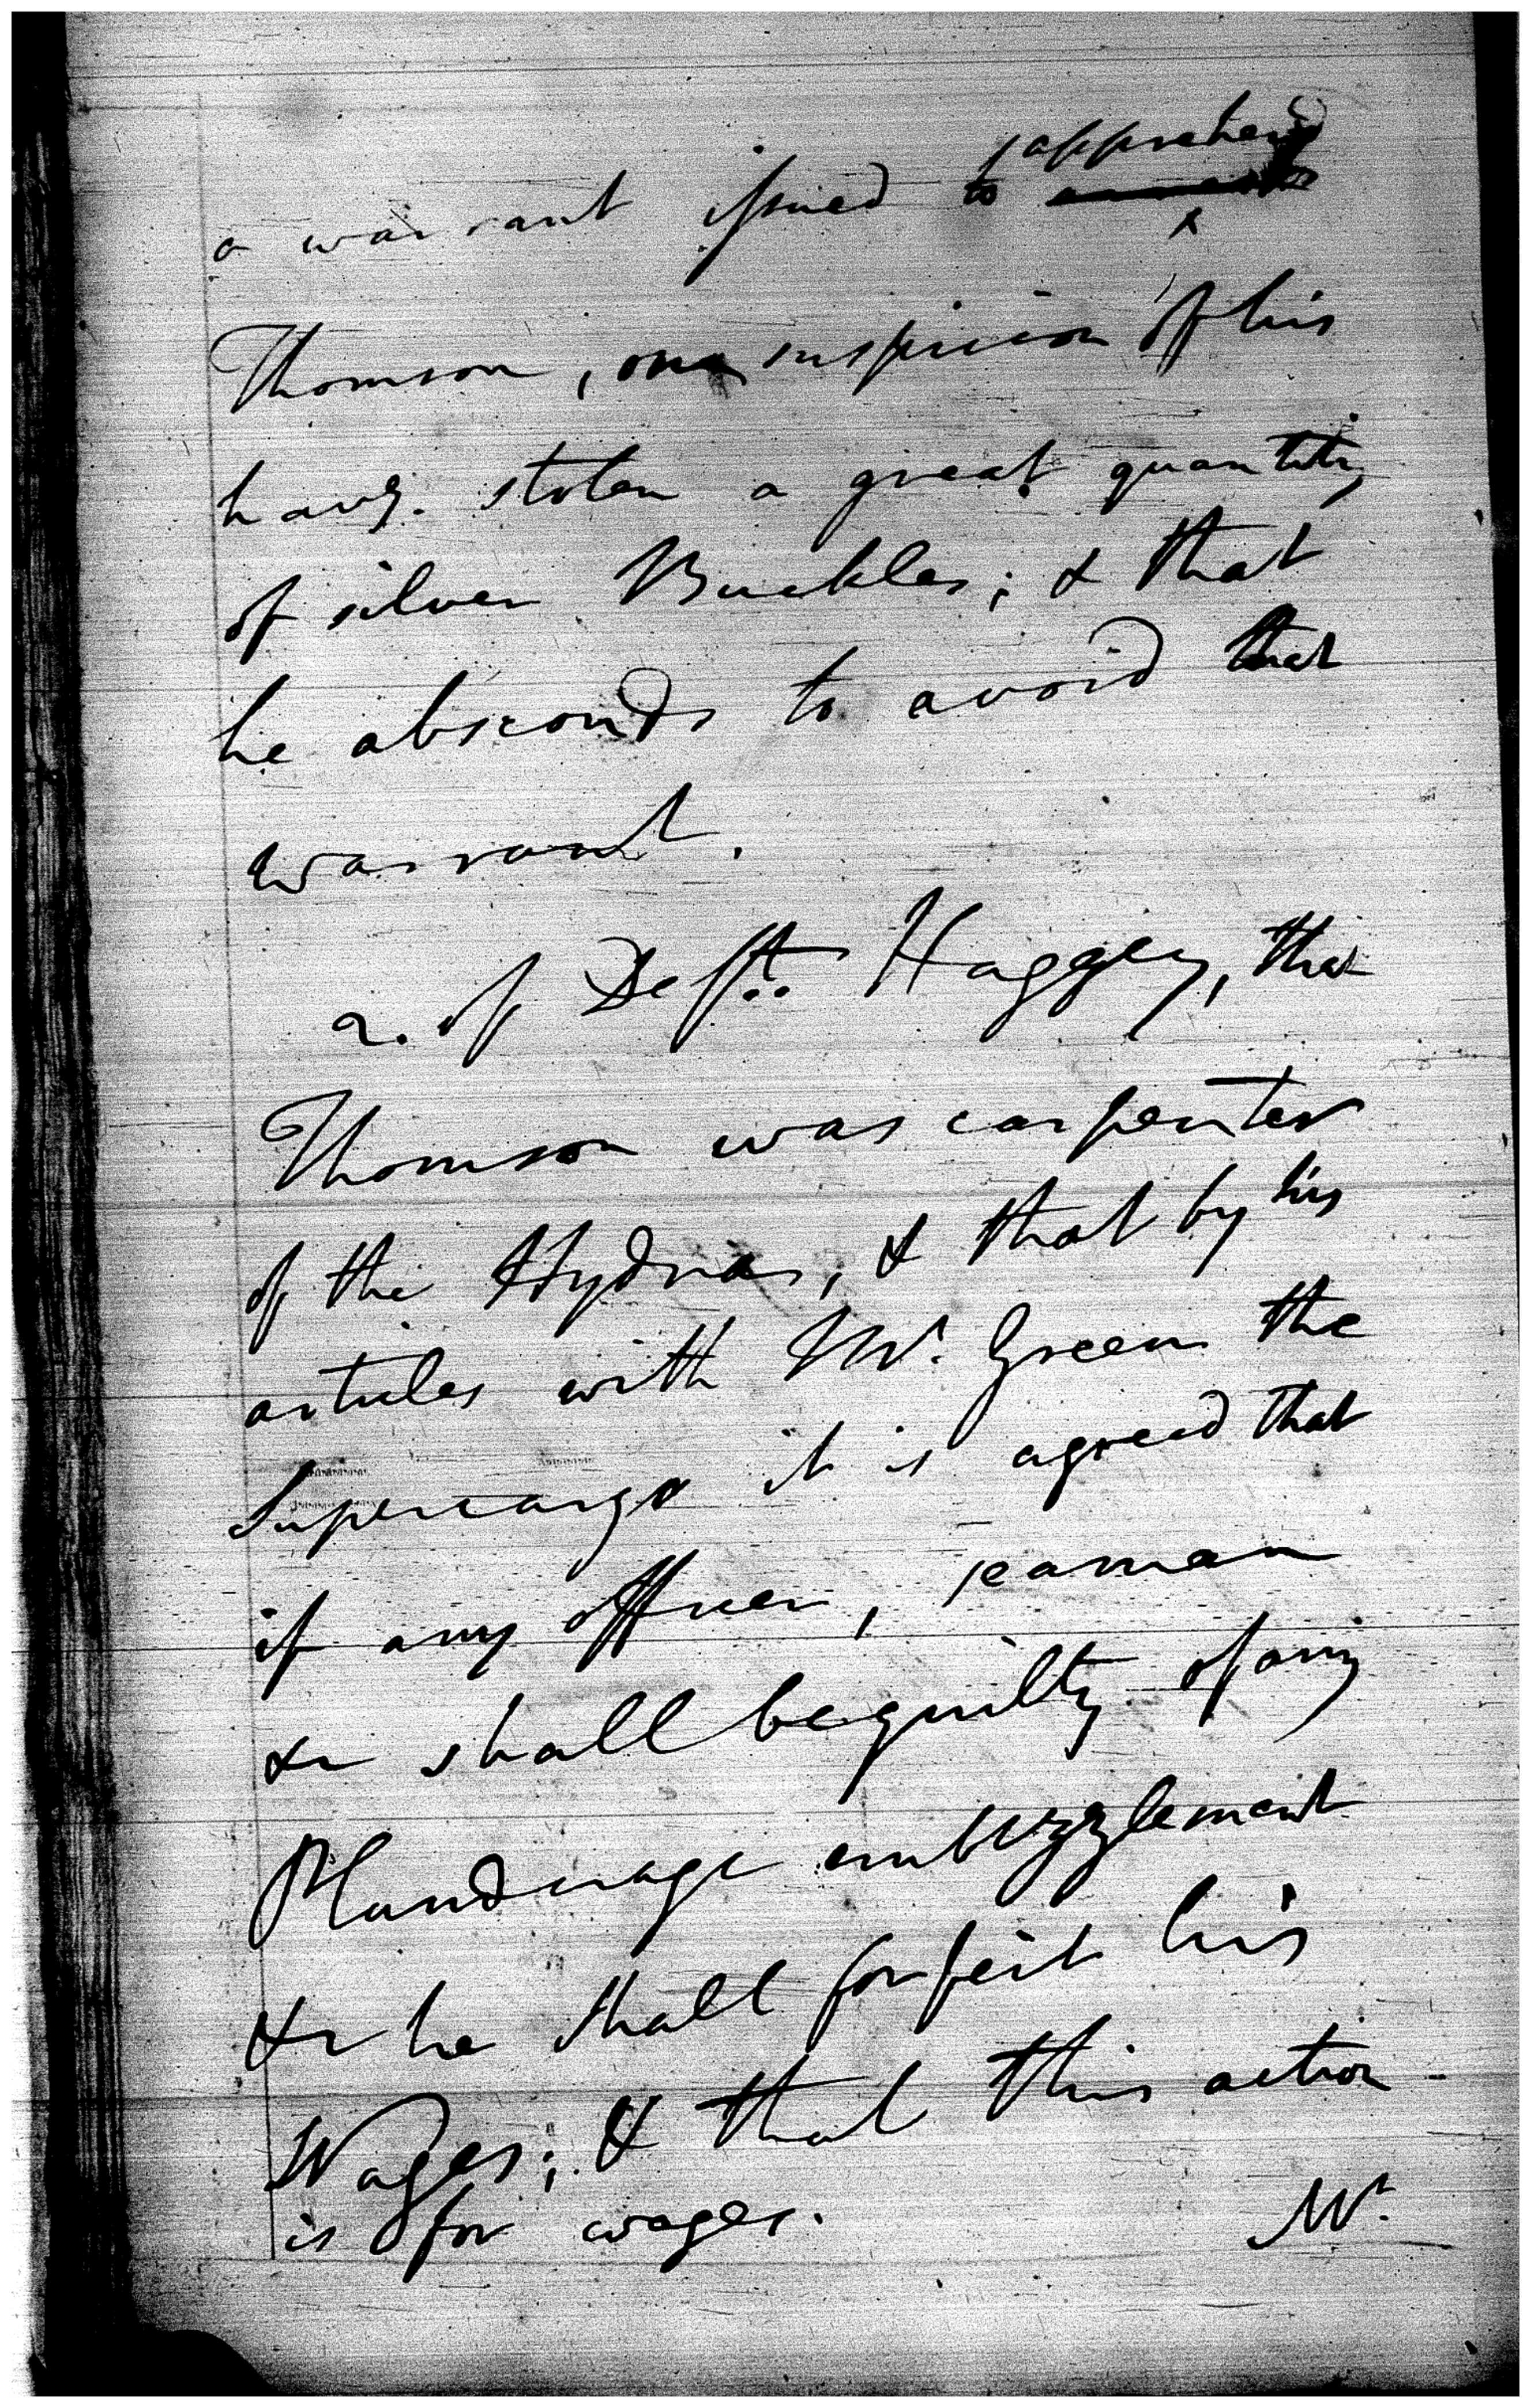 apprehend
a warrant issued to
Thomson, on suspicion of his
havg. stolen a great quantity
of silver Buckles; & that
he absconds to avoid that
warrant.
2. of Deft. Haggey, that
Thomson was carpenter
of the Hydra, & that by his
articles with Mr. Green the
Supercargo it is agreed that
if any officer, seaman
&c shall be guilty of any
Plunderage embezzlement
&c he shall forfeit his
Wages; & that this action
is for wages.
Mr.